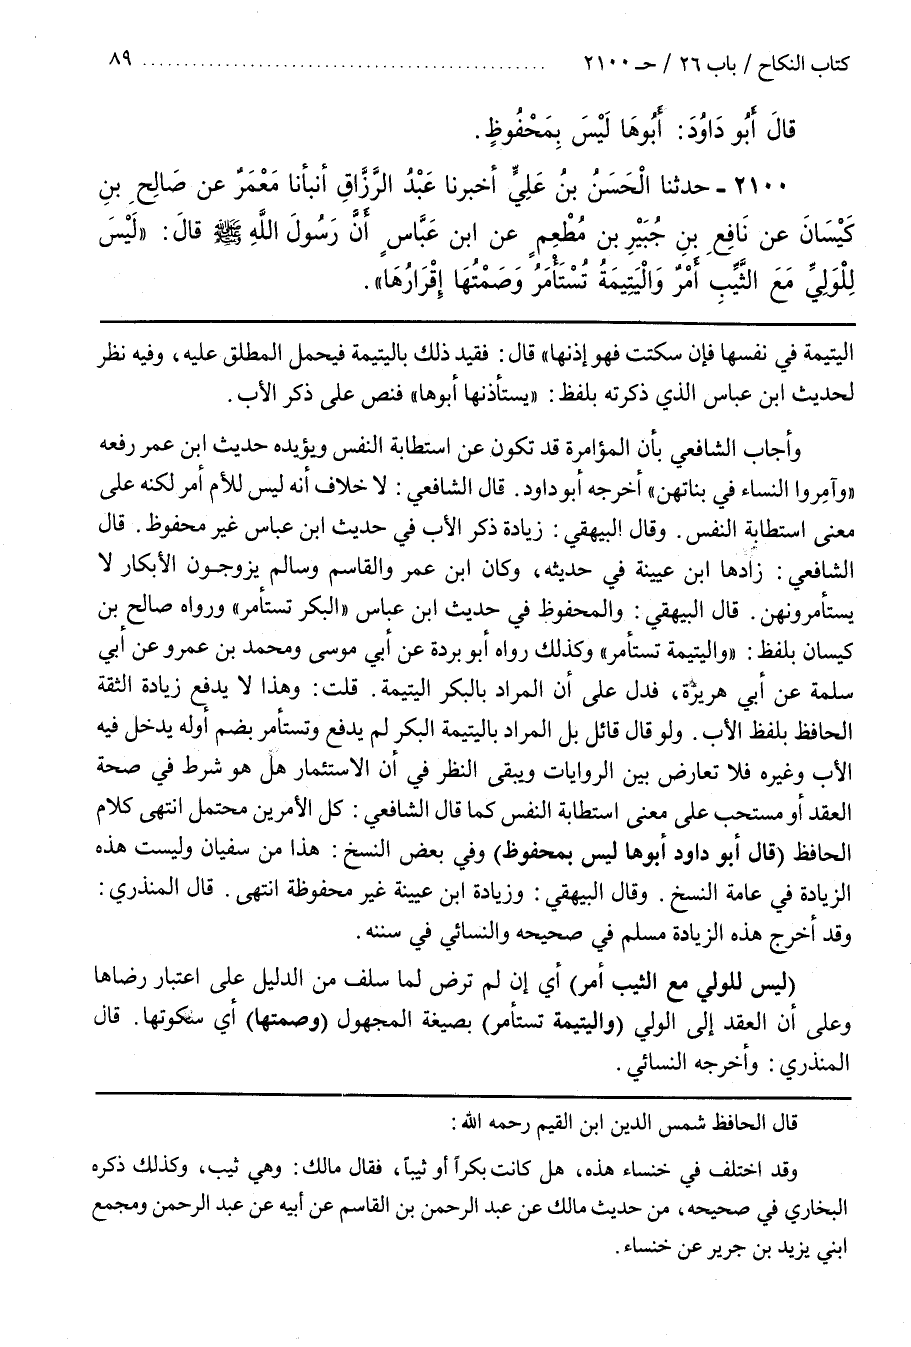 كتاب النكاح / باب ٢٦ / حـ ٢١٠٠ ............................................. ٨٩
قالَ أَبُو دَاوُدَ: أَبُوهَا لَيْسَ بِمَحْفُوظٍ.
٢١٠٠ ـ حدثنا الْحَسَنُ بنُ عَلِيٍّ أخبرنا عَبْدُ الرَّزَّاقِ أنبأنا مَعْمَرٌ عن صَالِحِ بنِ
كَيْسَانَ عن نَافِعِ بنِ جُبَيْرِ بن مُطْعِمٍ عن ابن عَبَّاسٍ أَنَّ رَسُولَ اللَّهِ ﷺ قالَ: «لَيْسَ
لِلْوَلِيِّ مَعَ الثَّيِّبِ أَمْرٌ وَالْيَتِيمَةُ تُسْتَأْمَرُ وَصَمْتُهَا إِقْرَارُهَا».
اليتيمة في نفسها فإن سكتت فهو إذنها» قال: فقيد ذلك باليتيمة فيحمل المطلق عليه، وفيه نظر
لحديث ابن عباس الذي ذكرته بلفظ: «يستأذنها أبوها» فنص على ذكر الأب.
وأجاب الشافعي بأن المؤامرة قد تكون عن استطابة النفس ويؤيده حديث ابن عمر رفعه
«وآمِروا النساء في بناتهن» أخرجه أبو داود. قال الشافعي: لا خلاف أنه ليس للأم أمر لكنه على
معنى استطابة النفس. وقال البيهقي: زيادة ذكر الأب في حديث ابن عباس غير محفوظ. قال
الشافعي: زادها ابن عيينة في حديثه، وكان ابن عمر والقاسم وسالم يزوجـون الأبكار لا
يستأمرونهن. قال البيهقي: والمحفوظ في حديث ابن عباس «البكر تستأمر» ورواه صالح بن
كيسان بلفظ: «واليتيمة تستأمر» وكذلك رواه أبو بردة عن أبي موسى ومحمد بن عمرو عن أبي
سلمة عن أبي هريرة، فدل على أن المراد بالبكر اليتيمة. قلت: وهذا لا يدفع زيادة الثقة
الحافظ بلفظ الأب. ولو قال قائل بل المراد باليتيمة البكر لم يدفع وتستأمر بضم أوله يدخل فيه
الأب وغيره فلا تعارض بين الروايات ويبقى النظر في أن الاستئمار هل هو شرط في صحة
العقد أو مستحب على معنى استطابة النفس كما قال الشافعي: كل الأمرين محتمل انتهى كلام
الحافظ (قال أبو داود أبوها ليس بمحفوظ) وفي بعض النسخ: هذا من سفيان وليست هذه
الزيادة في عامة النسخ. وقال البيهقي: وزيادة ابن عيينة غير محفوظة انتهى. قال المنذري:
وقد أخرج هذه الزيادة مسلم في صحيحه والنسائي في سننه.
(ليس للولي مع الثيب أمر) أي إن لم ترض لما سلف من الدليل على اعتبار رضاها
وعلى أن العقد إلى الولي (واليتيمة تستأمر) بصيغة المجهول (وصمتها) أي سكوتها. قال
المنذري: وأخرجه النسائي.
قال الحافظ شمس الدين ابن القيم رحمه الله:
وقد اختلف في خنساء هذه، هل كانت بكراً أو ثيباً، فقال مالك: وهي ثيب، وكذلك ذكره
البخاري في صحيحه، من حديث مالك عن عبد الرحمن بن القاسم عن أبيه عن عبد الرحمن ومجمع
ابني يزيد بن جرير عن خنساء.